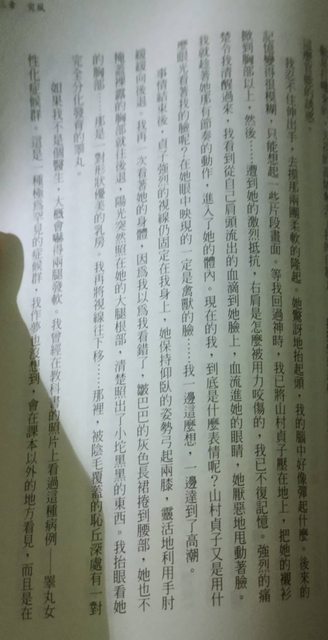 這麼奇怪的誘惑。
我忍不住伸出手，去摸那兩團柔軟的隆起。她驚訝地抬起頭，我的腦中好像彈起什麼。後來的
記憶變得很模糊，只能想起一些片段畫面。等我回過神時，我已將山村貞子壓在地上，把她的襯衫
掀到胸部以上，然後……遭到她的激烈抵抗，右肩是怎麼被用力咬傷的，我已不復記憶。強烈的痛
楚令我清醒過來，我看到從自己肩頭流出的血滴到她臉上，血流進她的眼睛，她厭惡地甩動著臉。
我就趁著她那有節奏的動作，進入了她的體內。現在的我，到底是什麼表情呢？山村貞子又是用什
麼眼光看著我的臉呢？在她眼中映現的一定是禽獸的臉……我一邊這麼想，一邊達到了高潮。
事情結束後，貞子強烈的視線仍固定在我身上，她保持仰臥的姿勢弓起兩膝，靈活地利用手肘
緩緩向後退。我再一次看著她的身體，因為我以為我看錯了，皺巴巴的灰色長裙捲到腰部，她也不
掩蓋裸露的胸部就往後退，陽光突然照在她的大腿根部，清楚照出了小坨黑黑的東西。我抬眼看她
的胸部……那是一對形狀優美的乳房。我再將視線往下移……那裡，被陰毛覆蓋的恥丘深處有一對
完全分化發育的睪丸。
如果我不是個醫生，大概會嚇得兩腿發軟。我曾經在教科書的照片上看過這種病例——睪丸女
性化症候群。這是一種極為罕見的症候群，我作夢也沒想到，會在課本以外的地方看見，而且是在